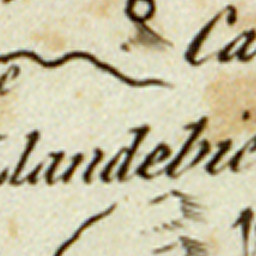 Ca
Llandebie